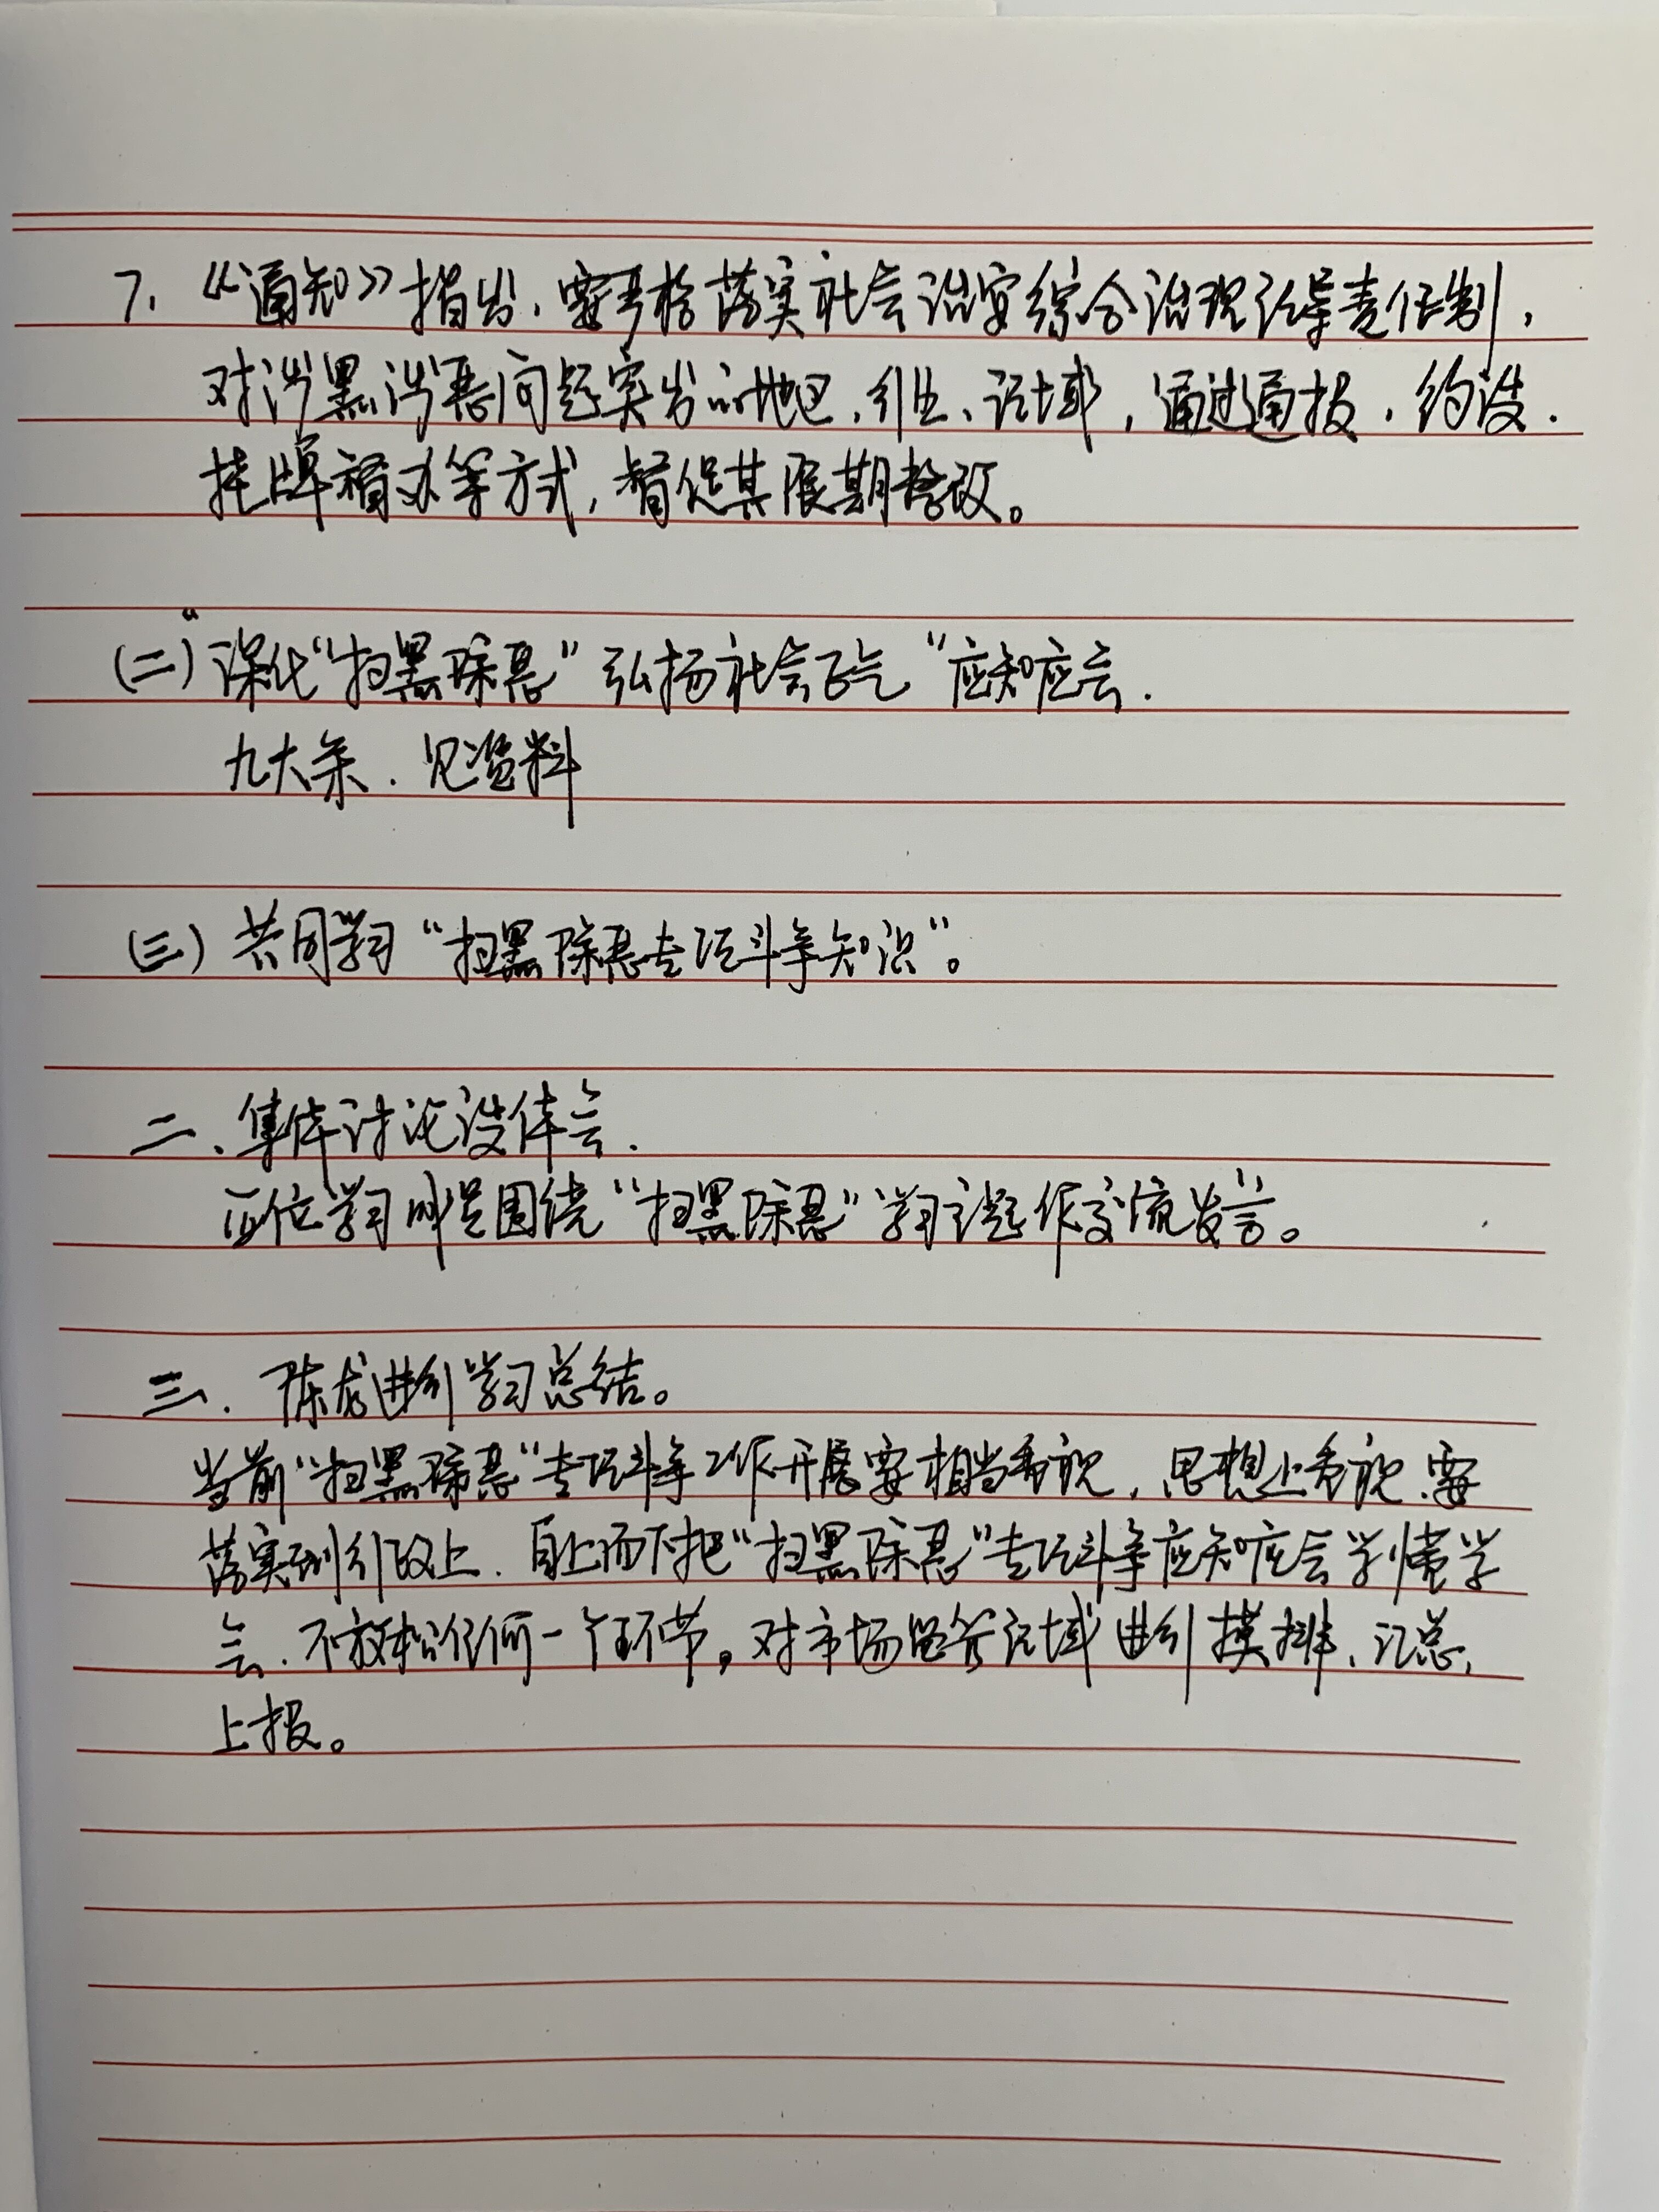 7、《通知》指出,要严格落实社会治安综合治理领导责任制,
对涉黑涉恶问题突出的地区、行业、领域,通过通报、约谈、
挂牌督办等方式,督促其限期整改。
(二)“深化“扫黑除恶”弘扬社会正气”应知应会.
九大条.见资料
(三)共同学习“扫黑除恶专项斗争知识”。
二、集体讨论谈体会.
四位学习成员围绕“扫黑除恶”学习主题作交流发言。
三.陈龙进行学习总结。
当前“扫黑除恶”专项斗争工作开展要相当重视,思想上重视.要
落实到行政上.自上而下把“扫黑除恶”专项斗争应知应会学懂学
会.不放松任何一个环节。对市场监管领域进行摸排、汇总、
上报。